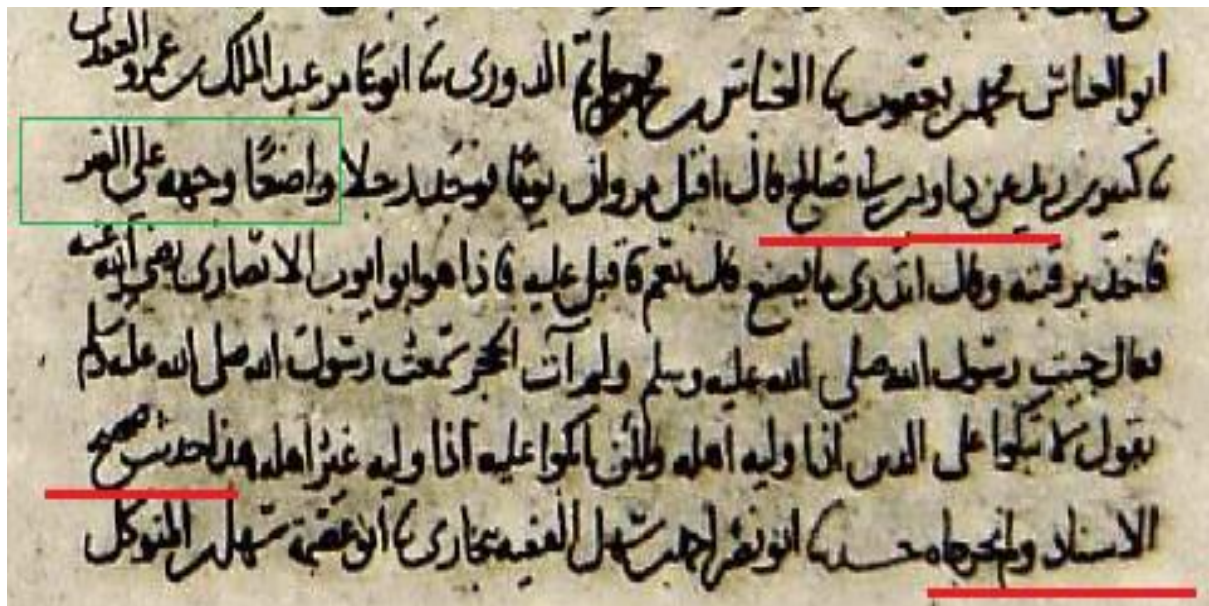 ابو العباس محمد بن يعقوب ثنا العباس بن محمد بن حاتم الدوري ثنا ابو عامر عبد الملك بن عمرو العقدي
ثنا كثير بن زيد عن داود بن ابي صالح قال اقبل مروان يوما فوجد رجلا واضعا وجهه على القبر
فاخذ برقبته وقال اتدري ما تصنع قال نعم فاقبل عليه فاذا هو ابو ايوب الانصاري رضي الله عنه
فقال جيت رسول الله صلى الله عليه وسلم ولم آت الحجر سمعت رسول الله صلى الله عليه وسلم
يقول لا تبكوا على الدين اذا وليه اهله ولكن ابكوا عليه اذا وليه غير اهله هذا حديث صحيح
الاسناد ولم يخرجاه حدثنا ابو نصر احمد بن سهل الفقيه ببخارى ثنا ابو عصمة سهل بن المتوكل